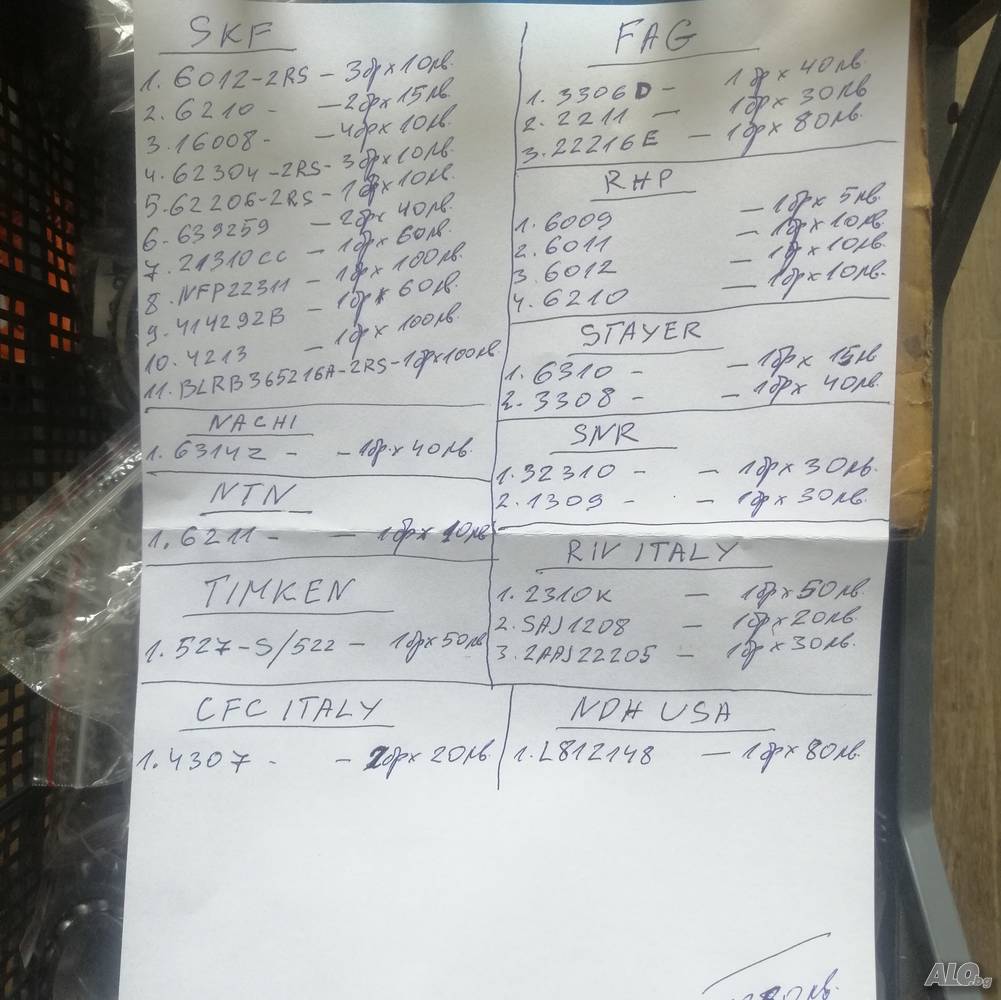 SKF
1. 6012-2RS - 3бр x 10лв.
2. 6210 - - 2бр x 15лв
3. 16008 - - 4бр x 10лв.
4. 62304-2RS - 3бр x 10лв.
5. 62206-2RS - 1бр x 10лв.
6. 639259 - 2бр x 40лв.
7. 21310CC - 1бр x 60лв.
8. NFP22311 - 1бр x 100лв.
9. 414292B - 1бр x 60лв.
10. 4213 - 1бр x 100лв.
11. BLRB365216A-2RS - 1бр x 100лв
NACHI
1. 6314Z - - 1бр. x 40лв.
NTN
1. 6211 - - 1бр x 10лв
TIMKEN
1. 527-S/522 - 1бр x 50лв
CFC ITALY
1. 4307 - - 2бр x 20лв.
FAG
1. 3306D - 1бр x 40лв.
2. 2211 - 1бр x 30лв
3. 22216E - 1бр x 80лв.
RHP
1. 6009 - 1бр x 5лв.
2. 6011 - 1бр x 10лв.
3. 6012 - 1бр x 10лв.
4. 6210 - 1бр x 10лв.
STAYER
1. 6310 - - 1бр x 15лв
2. 3308 - - 1бр x 40лв.
SNR
1. 32310 - - 1бр x 30лв.
2. 1309 - - 1бр x 30лв.
RIV ITALY
1. 2310K - 1бр x 50лв.
2. SAJ1208 - 1бр x 20лв.
3. 2AAJ22205 - 1бр x 30лв.
NDH USA
1. L812148 - 1бр x 80лв.
лв.
ALO.bg